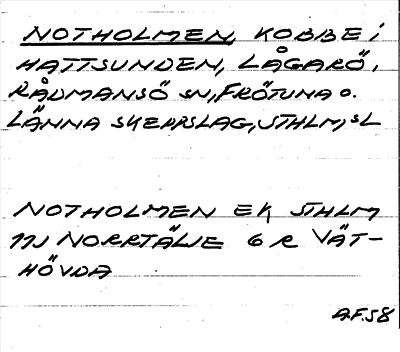 NOTHOLMEN, KOBBE i
HATTSUNDEN, LÅGARÖ,
RÅDMANSÖ SN, FRÖTUNA O.
LÄNNA SKEPPSLAG, STHLM, SL
NOTHOLMEN EK STHLM
11J NORRTÄLJE 6 R VÄT-
HÖVDA
A.F.58